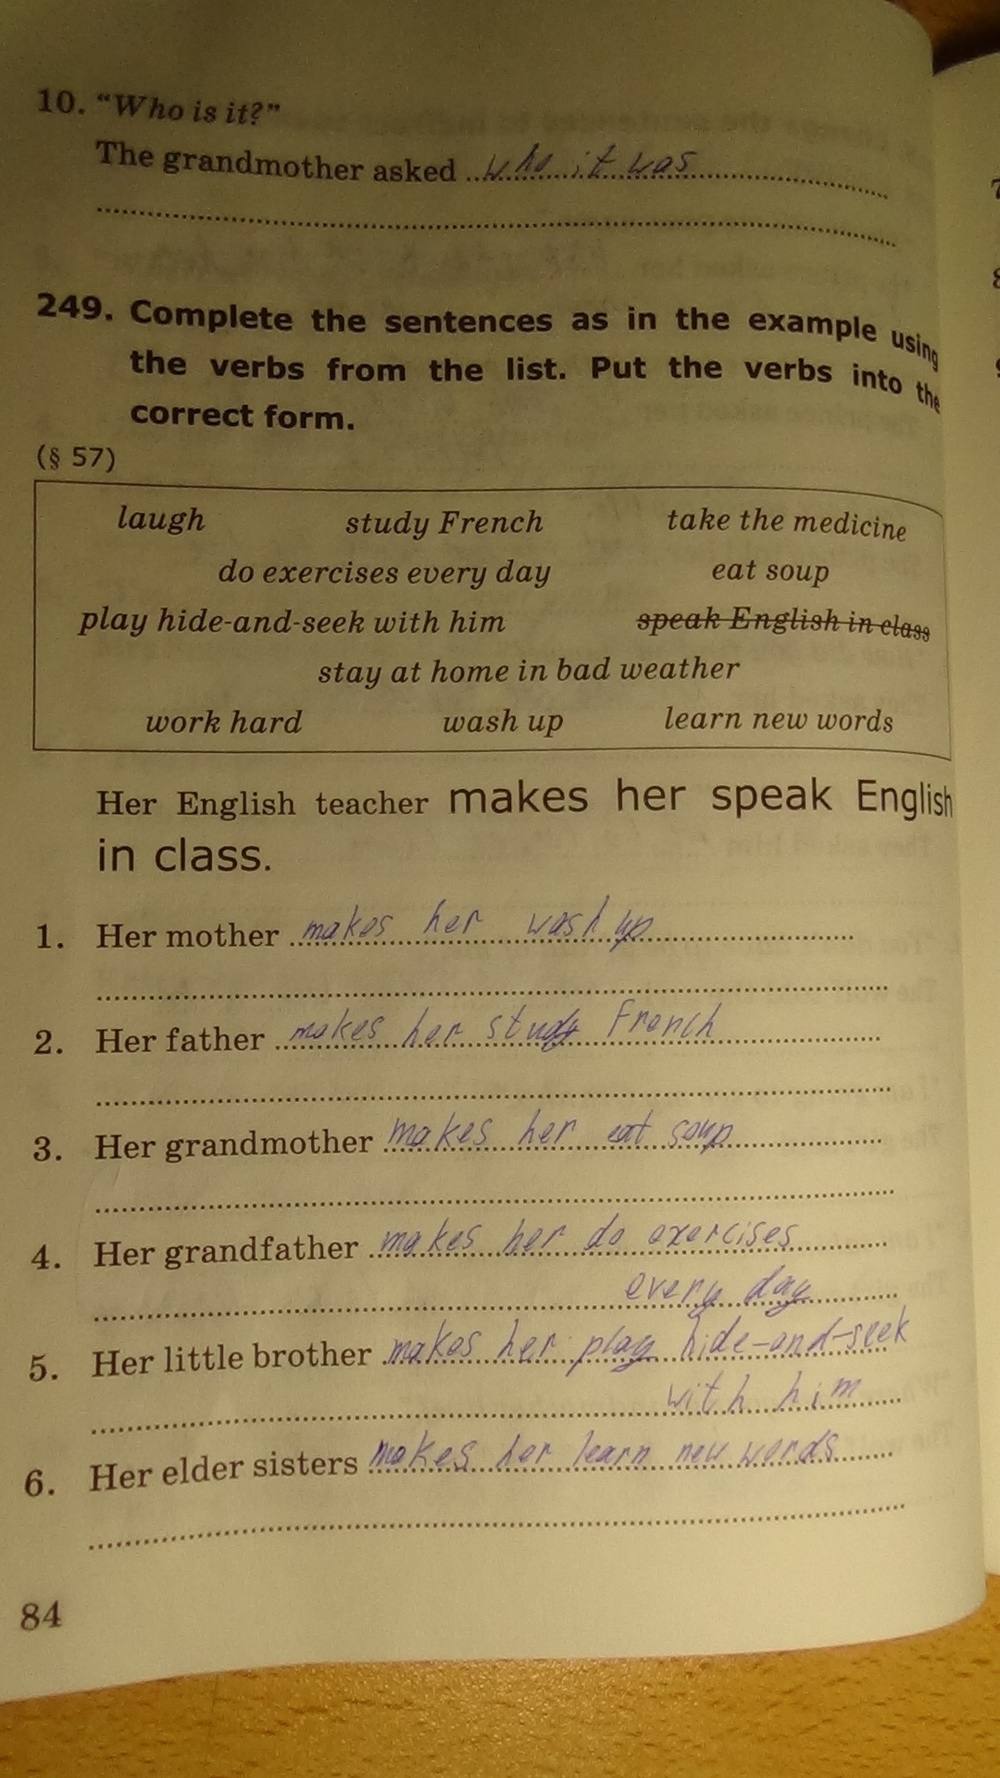 10. “Who is it?”
The grandmother asked who it was
249. Complete the sentences as in the example using
the verbs from the list. Put the verbs into the
correct form.
(§ 57)
laugh study French take the medicine
do exercises every day eat soup
play hide-and-seek with him speak English in class
stay at home in bad weather
work hard wash up learn new words
Her English teacher makes her speak English
in class.
1. Her mother makes her wash up
2. Her father makes her study French
3. Her grandmother makes her eat soup
4. Her grandfather makes her do exercises
every day
5. Her little brother makes her play hide-and-seek
with him
6. Her elder sisters makes her learn new words
84